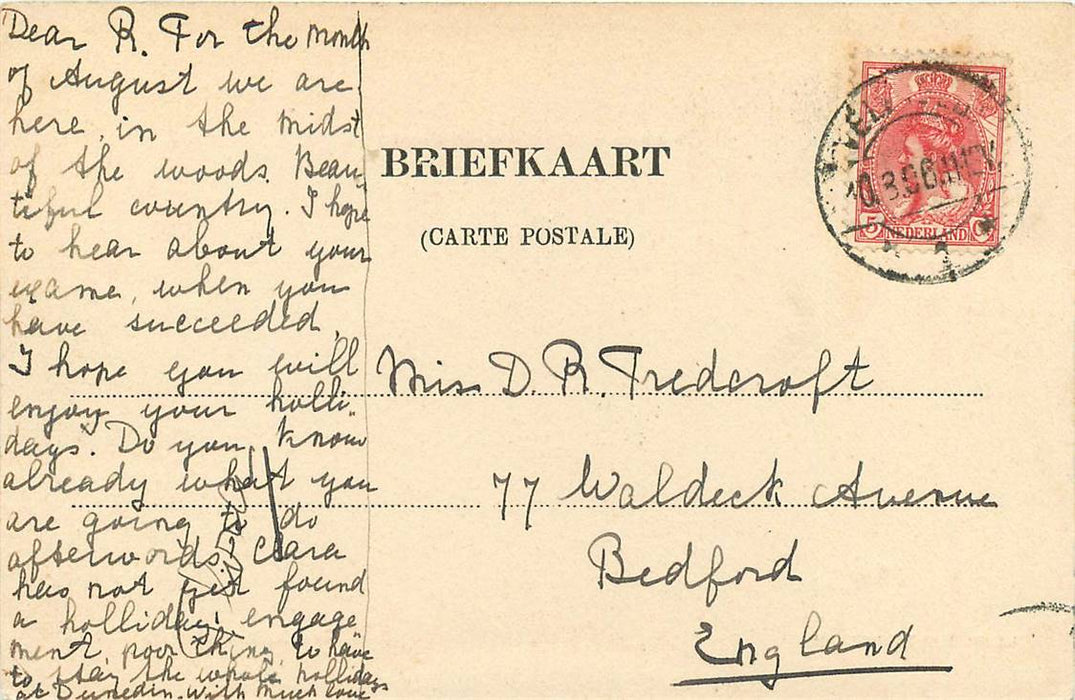 Dear R. For the month
of August we are
here, in the midst
of the woods. Beau-
tiful country. I hope
to hear about your
exame, when you
have succeeded.
I hope you will
enjoy your holli-
days. Do you know
already what you
are going to do
afterwords, Clara
has not yet found
a holliday engage
ment, poor thing, to have
to stay the whole hollidays
at Dunedin. With much love
BRIEFKAART
(CARTE POSTALE)
5 NEDERLAND Ct
Miss D. R. Tredcroft
77 Waldeck Avenue
Bedford
England